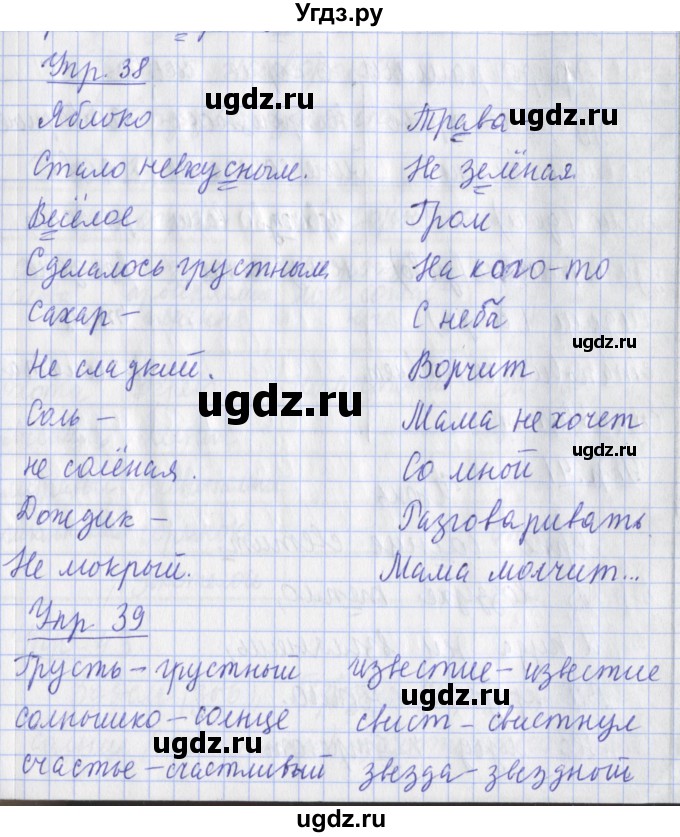 Угдз.ру
Упр. 38
ugdz.ru
ugdz.ru
Яблоко
Стало невкусным.
Весёлое
Сделалось грустным,
Сахар –
Не сладкий.
Соль –
не солёная.
Дождик –
Не мокрый.
Трава
Не зелёная
Гром
На кого-то
С неба
ugdz.ru
Ворчит
ugdz.ru
Мама не хочет
ugdz.ru
Со мной
Разговаривать
Мама молчит...
Упр 39
Грусть – грустный
солнышко – солнце
ugdz.ru
счастье – счастливый
известие – известие
ugdz.ru
свист – свистнул
звезда – звездный
ugdz.ru